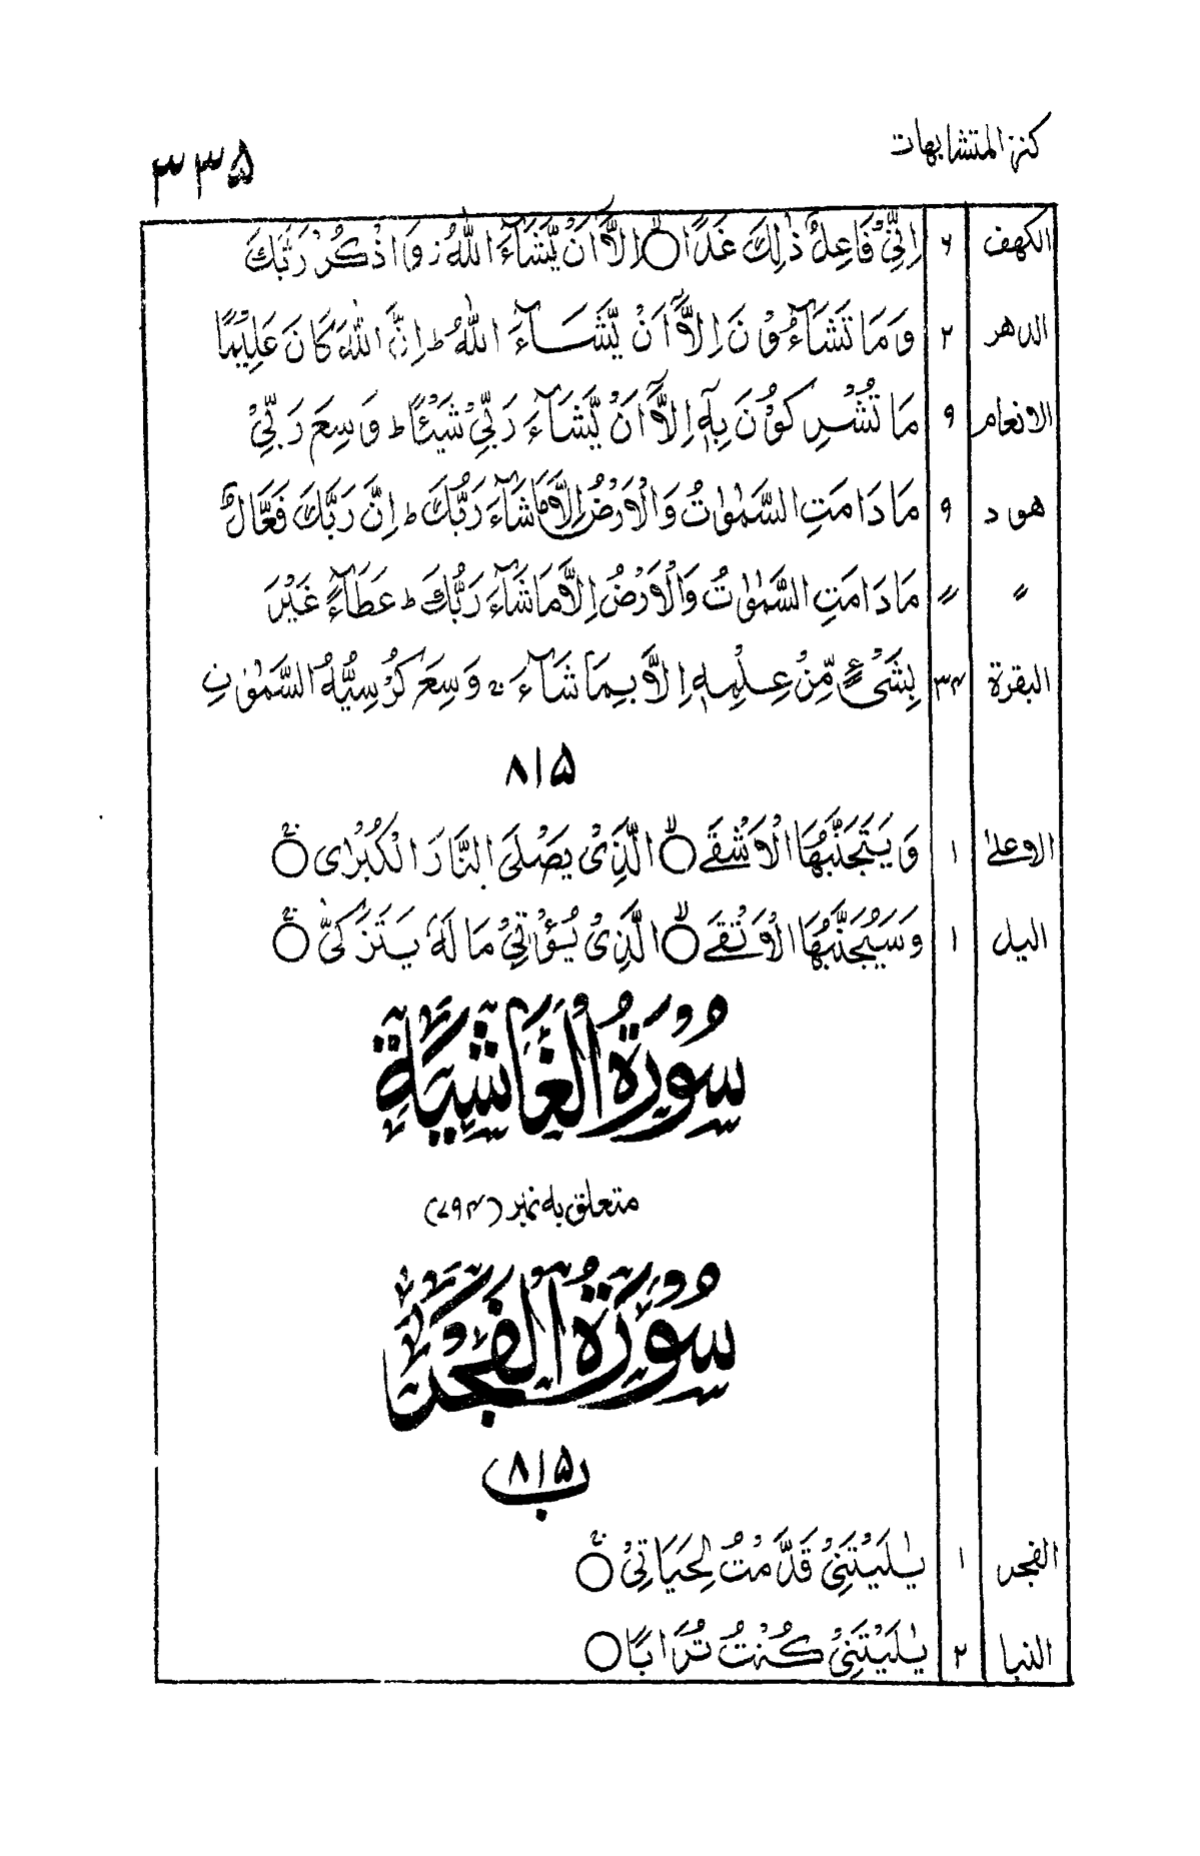 كنز المتشابهات ۳۳۵
الكهف ۴ اِنِّيْ فَاعِلٌ ذٰلِكَ غَدًا۝ اِلَّآ اَنْ يَّشَآءَ اللّٰهُ ز وَاذْكُرْ رَّبَّكَ
الدهر ۲ وَمَا تَشَآءُوْنَ اِلَّآ اَنْ يَّشَآءَ اللّٰهُ ط اِنَّ اللّٰهَ كَانَ عَلِيْمًا
الانعام ۹ مَا تُشْرِكُوْنَ بِهٖٓ اِلَّآ اَنْ يَّشَآءَ رَبِّيْ شَيْئًا ط وَسِعَ رَبِّيْ
هود ۹ مَا دَامَتِ السَّمٰوٰتُ وَالْاَرْضُ اِلَّا مَا شَآءَ رَبُّكَ ط اِنَّ رَبَّكَ فَعَّالٌ
〃 〃 مَا دَامَتِ السَّمٰوٰتُ وَالْاَرْضُ اِلَّا مَا شَآءَ رَبُّكَ ط عَطَآءً غَيْرَ
البقرة ۳۴ بِشَيْءٍ مِّنْ عِلْمِهٖٓ اِلَّا بِمَا شَآءَ ج وَسِعَ كُرْسِيُّهُ السَّمٰوٰتِ
۸۱۵
الاعلىٰ ۱ وَيَتَجَنَّبُهَا الْاَشْقَى۝ الَّذِيْ يَصْلَى النَّارَ الْكُبْرٰى۝
اليل ۱ وَسَيُجَنَّبُهَا الْاَتْقَى۝ الَّذِيْ يُؤْتِيْ مَا لَهٗ يَتَزَكّٰى۝
سُوْرَةُ الْغَاشِيَةِ
متعلق به نمبر (۷۹۴)
سُوْرَةُ الْفَجْرِ
۸۱۵ ب
الفجر ۱ يٰلَيْتَنِيْ قَدَّمْتُ لِحَيَاتِيْ۝
النبا ۲ يٰلَيْتَنِيْ كُنْتُ تُرَابًا۝